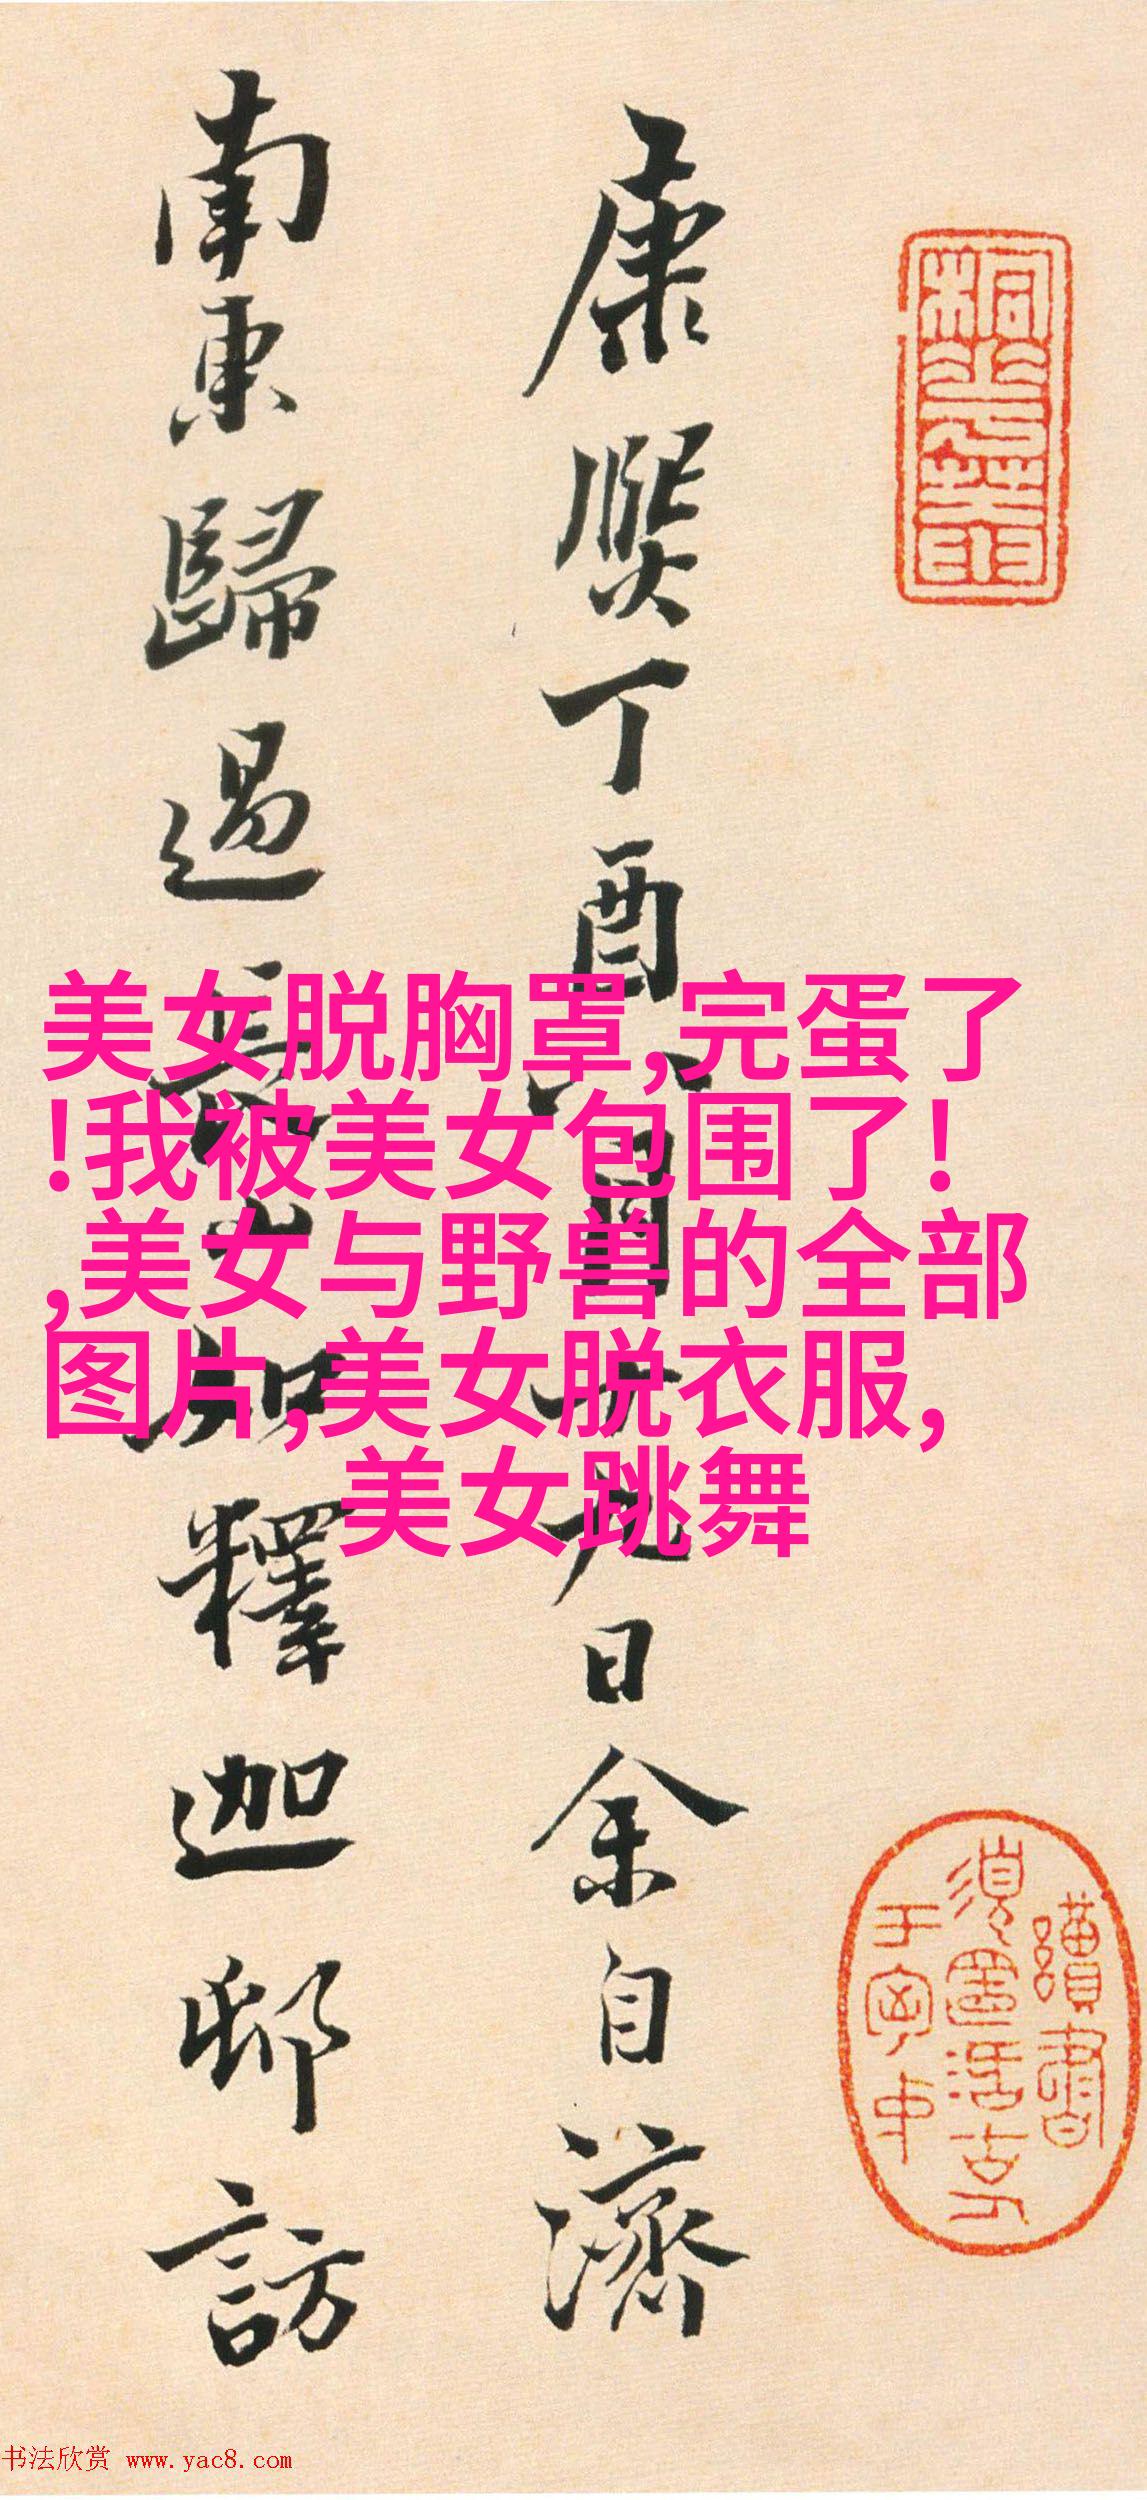 康熙丁酉八月九日余自濟
南東歸過長山釋迦邨訪
美女脱胸罩,完蛋了
!我被美女包围了!
,美女与野兽的全部
图片,美女脱衣服,
美女跳舞
书法欣赏 www.yac8.com